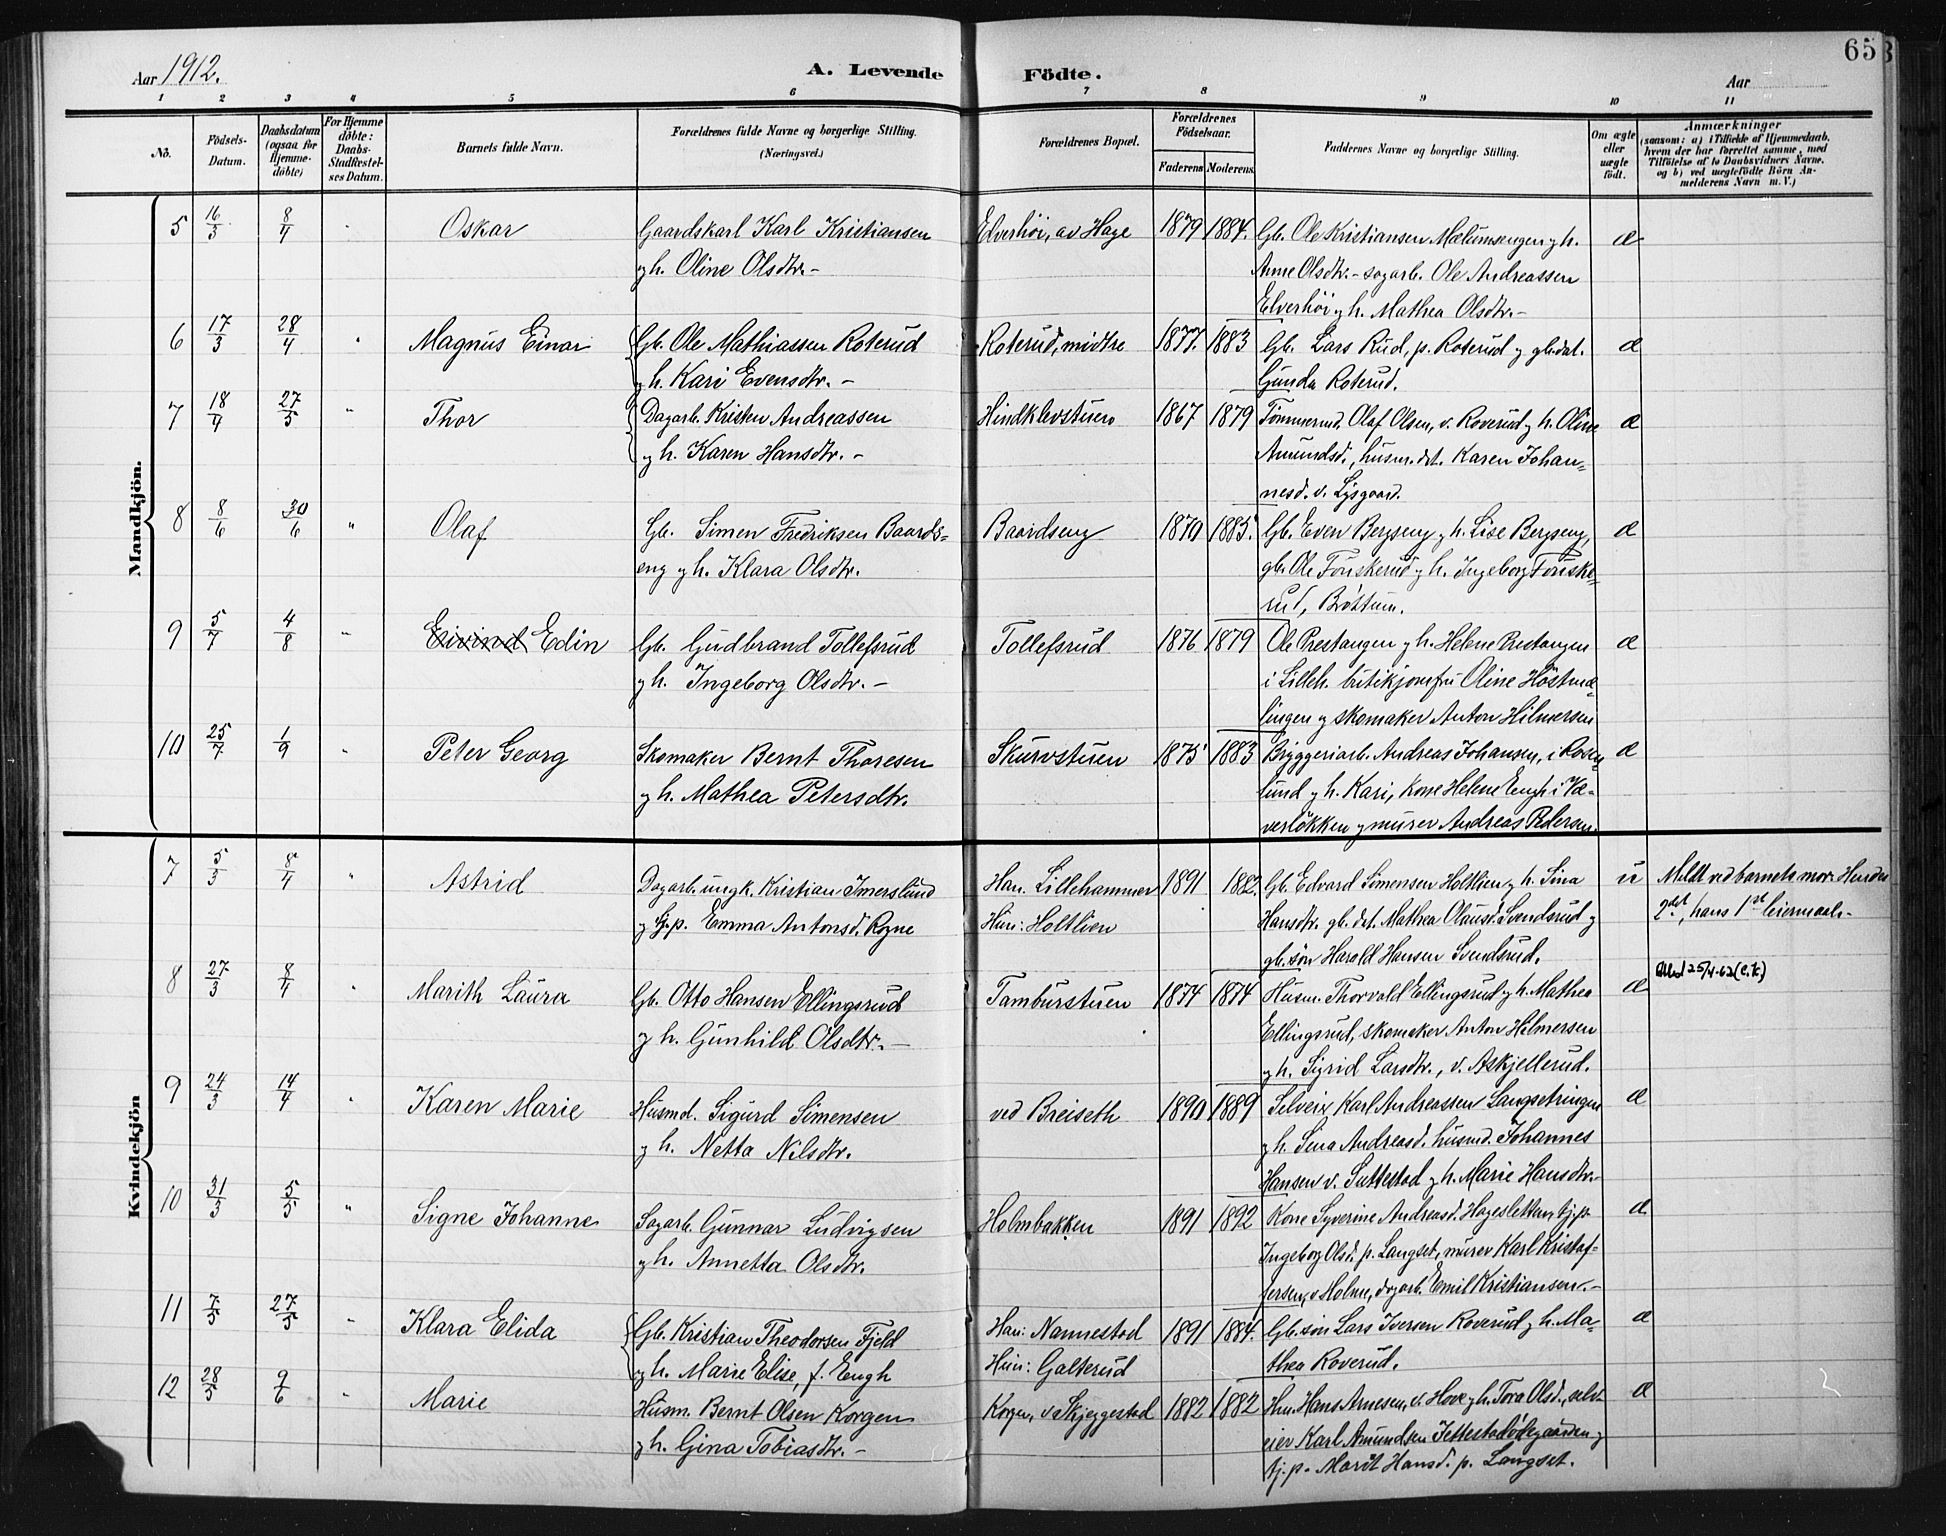 65
Aar 1912.
A. Levende Födte.
Aar
1 2 3 4 5 6 7 8 9 10 11
No.
Födsels-Datum.
Daabsdatum (ogsaa for Hjemme-döbte)
For Hjemme döbte: Daabs-Stadfæstel-ses Datum.
Barnets fulde Navn.
Forældrenes fulde Navne og borgerlige Stilling. (Næringsvei.)
Forældrenes Bopæl.
Forældrenes Födselsaar.
Faderens Moderens
Faddernes Navne og borgerlige Stilling.
Om ægte eller uægte födt.
Anmærkninger
(saasom: a) i Tilfælde af Hjemmedaab, hvem der har forrettet samme, med Tilföielse af to Daabsvidners Navne, og b) ved uægtefödte Börn An-melderens Navn m. V.)
Mandkjön.
5 16/3 8/4 Oskar Gaardskarl Karl Kristiansen Elverhöi, av Hage 1879 1884. Gb. Ole Kristiansen Mælumsengen g h. æ
g h. Oline Olsdtr. - Anne Olsdtr. - sagarb. Ole Andreassen
Elverhöi g h. Mathea Olsdtr. -
6 17/3 28/4 Magnus Einar Gb. Ole Mathiassen Roterud Roterud, midtre 1877. 1883 Gb. Lars Rud, p. Roterud g gb.dat. æ
g h. Kari Evensdtr. - Gunda Roterud.
7 18/4 27/5 Thor Dagarb. Kristen Andreassen Hindklevstuen 1867 1879 Tömmermd. Olaf Olsen, v. Roverud g h. Oline æ
g h. Karen Hansdtr. - Amundsd., husm.dt. Karen Johan-
nesd. v. Lysgaard.
8 8/6 30/6 Olaf Gb. Simen Fredriksen Baards- Baardseng 1870 1885. Gb. Even Bergseng g h. Lise Bergseng, æ
eng g h. Klara Olsdtr. gb. Ole Fönskerud g h. Ingeborg Fönske-
rud, Bröttum.
9 5/7 4/8 Eivind Edin Gb. Gudbrand Tollefsrud Tollefsrud 1876 1879 Ole Prestangen g h. Helene Prestangen æ
g h. Ingeborg Olsdtr. - i Lilleh. butikjomfru Oline Höstmæ-
lingen g skomaker Anton Hilmersen
10 25/7 1/9 Peter Georg Skomaker Bernt Thoresen Skurvstuen 1875 1883 Bryggeriarb. Andreas Johansen, i Rosen- æ
g h. Mathea Petersdtr. lund g h. Kari, kone Helene Engh i Hæ-
verlökken g murer Andreas Pedersen.
Kvindekjön
7 5/3 8/4 Astrid Dagarb. ungk. Kristian Imerslund Han. Lillehammer 1891 1882. Gb. Edvard Simensen Holtlien g h. Sina u Meldt ved barnets mor. Hendes
g tj.p. Emma Antonsd. Rogne Hun: Holtlien Hansdtr. gb.dt. Mathea Olausd. Svendsrud g 2det, hans 1st leiermaal. -
gb.sön Harald Hansen Svendsrud.
8 27/3 8/4 Marith Laura Gb. Otto Hansen Ellingsrud Tamburstuen 1874 1874 Husm. Thorvald Ellingsrud g h. Mathea æ
g h. Gunhild Olsdtr. - Ellingsrud, skomaker Anton Helmersen
g h. Sigrid Larsdtr., v. Askjellerud.
9 24/3 14/4 Karen Marie Husmd. Sigurd Simensen ved Breiseth 1890 1889 Selveier Karl Andreassen Langsetringen æ
g h. Netta Nilsdtr. g h. Sena Andreasd. husmd. Johannes
Hansen v. Suttestad g h. Marie Hansdtr. -
10 31/3 5/5 Signe Johanne Sagarb. Gunnar Ludvigsen Holmbakken 1891 1892 Kone Syverine Andreasd. Hagesletten, tj.p. æ
g h. Annetta Olsdtr. Ingeborg Olsd. p. Langset, murer Karl Kristof-
fersen, v Holme, dagarb. Emil Kristiansen. -
11 7/5 27/5 Klara Elida Gb. Kristian Theodorsen Fjeld Han: Nannestad 1891 1884. Gb.sön Lars Iversen Roverud g h. Ma- æ
g h. Marie Elise, f. Engh Hun: Galterud thea Roverud.
12 28/5 9/6 Marie Husm. Bernt Olsen Korgen Korgen, v Skjeggestad 1882 1882 Hm. Hans Arnesen, v. Hove g h. Tora Olsd., selv- æ
g h. Gina Tobiasdtr. - eier Karl Amundsen Jettestadödegaarden g
tj.p. Marit Hansd. p. Langset.